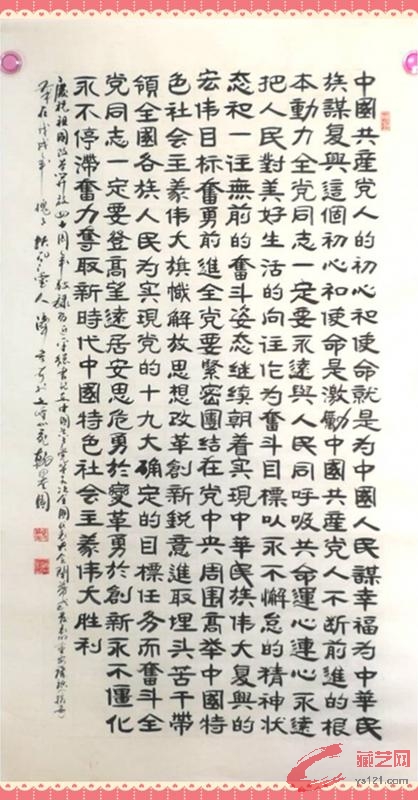 中國共産党人的初心和使命就是为中國人民謀幸福为中華民
族謀复興這個初心和使命是激勵中國共産党人不断前進的根
本動力全党同志一定要永遠與人民同呼吸共命運心連心永遠
把人民對美好生活的向往作为奮斗目標以永不懈怠的精神状
态和一往無前的奮斗姿态继续朝着实現中華民族伟大复興的
宏伟目标奋勇前進全党要緊密團結在党中央周围高举中國特
色社会主義伟大旗幟解放思想改革創新銳意進取埋头苦干带
領全國各族人民为实現党的十九大确定的目標任务而奮斗全
党同志一定要登高望遠居安思危勇於變革勇於創新永不僵化
永不停滯奮力奪取新時代中國特色社会主義伟大胜利
慶祝祖国改革開放四十周年敬録
戊戌年
藏艺网
ys121.com